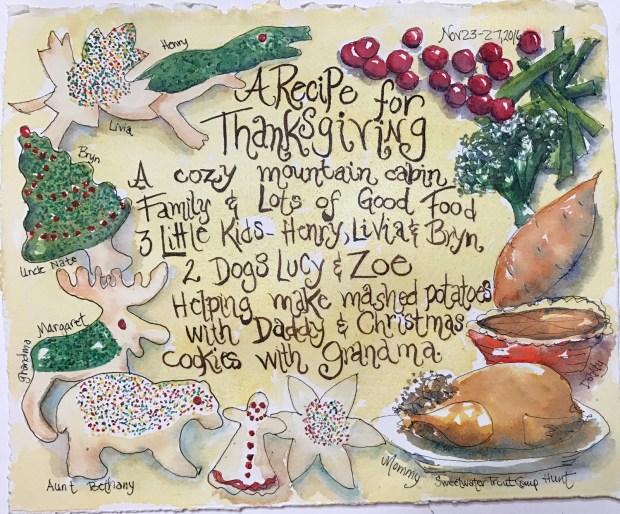 Nov 23-27, 2016
A Recipe for
Thanksgiving
A cozy mountain cabin
Family & Lots of Good Food
3 Little Kids- Henry, Livia & Bryn
2 Dogs Lucy & Zoe
Helping make mashed potatoes
with Daddy & Christmas
cookies with grandma
Henry
Livia
Bryn
Uncle Nate
Margaret
grandma
Aunt Bethany
Daddy
Mommy
Sweetwater Trout Camp Hunt